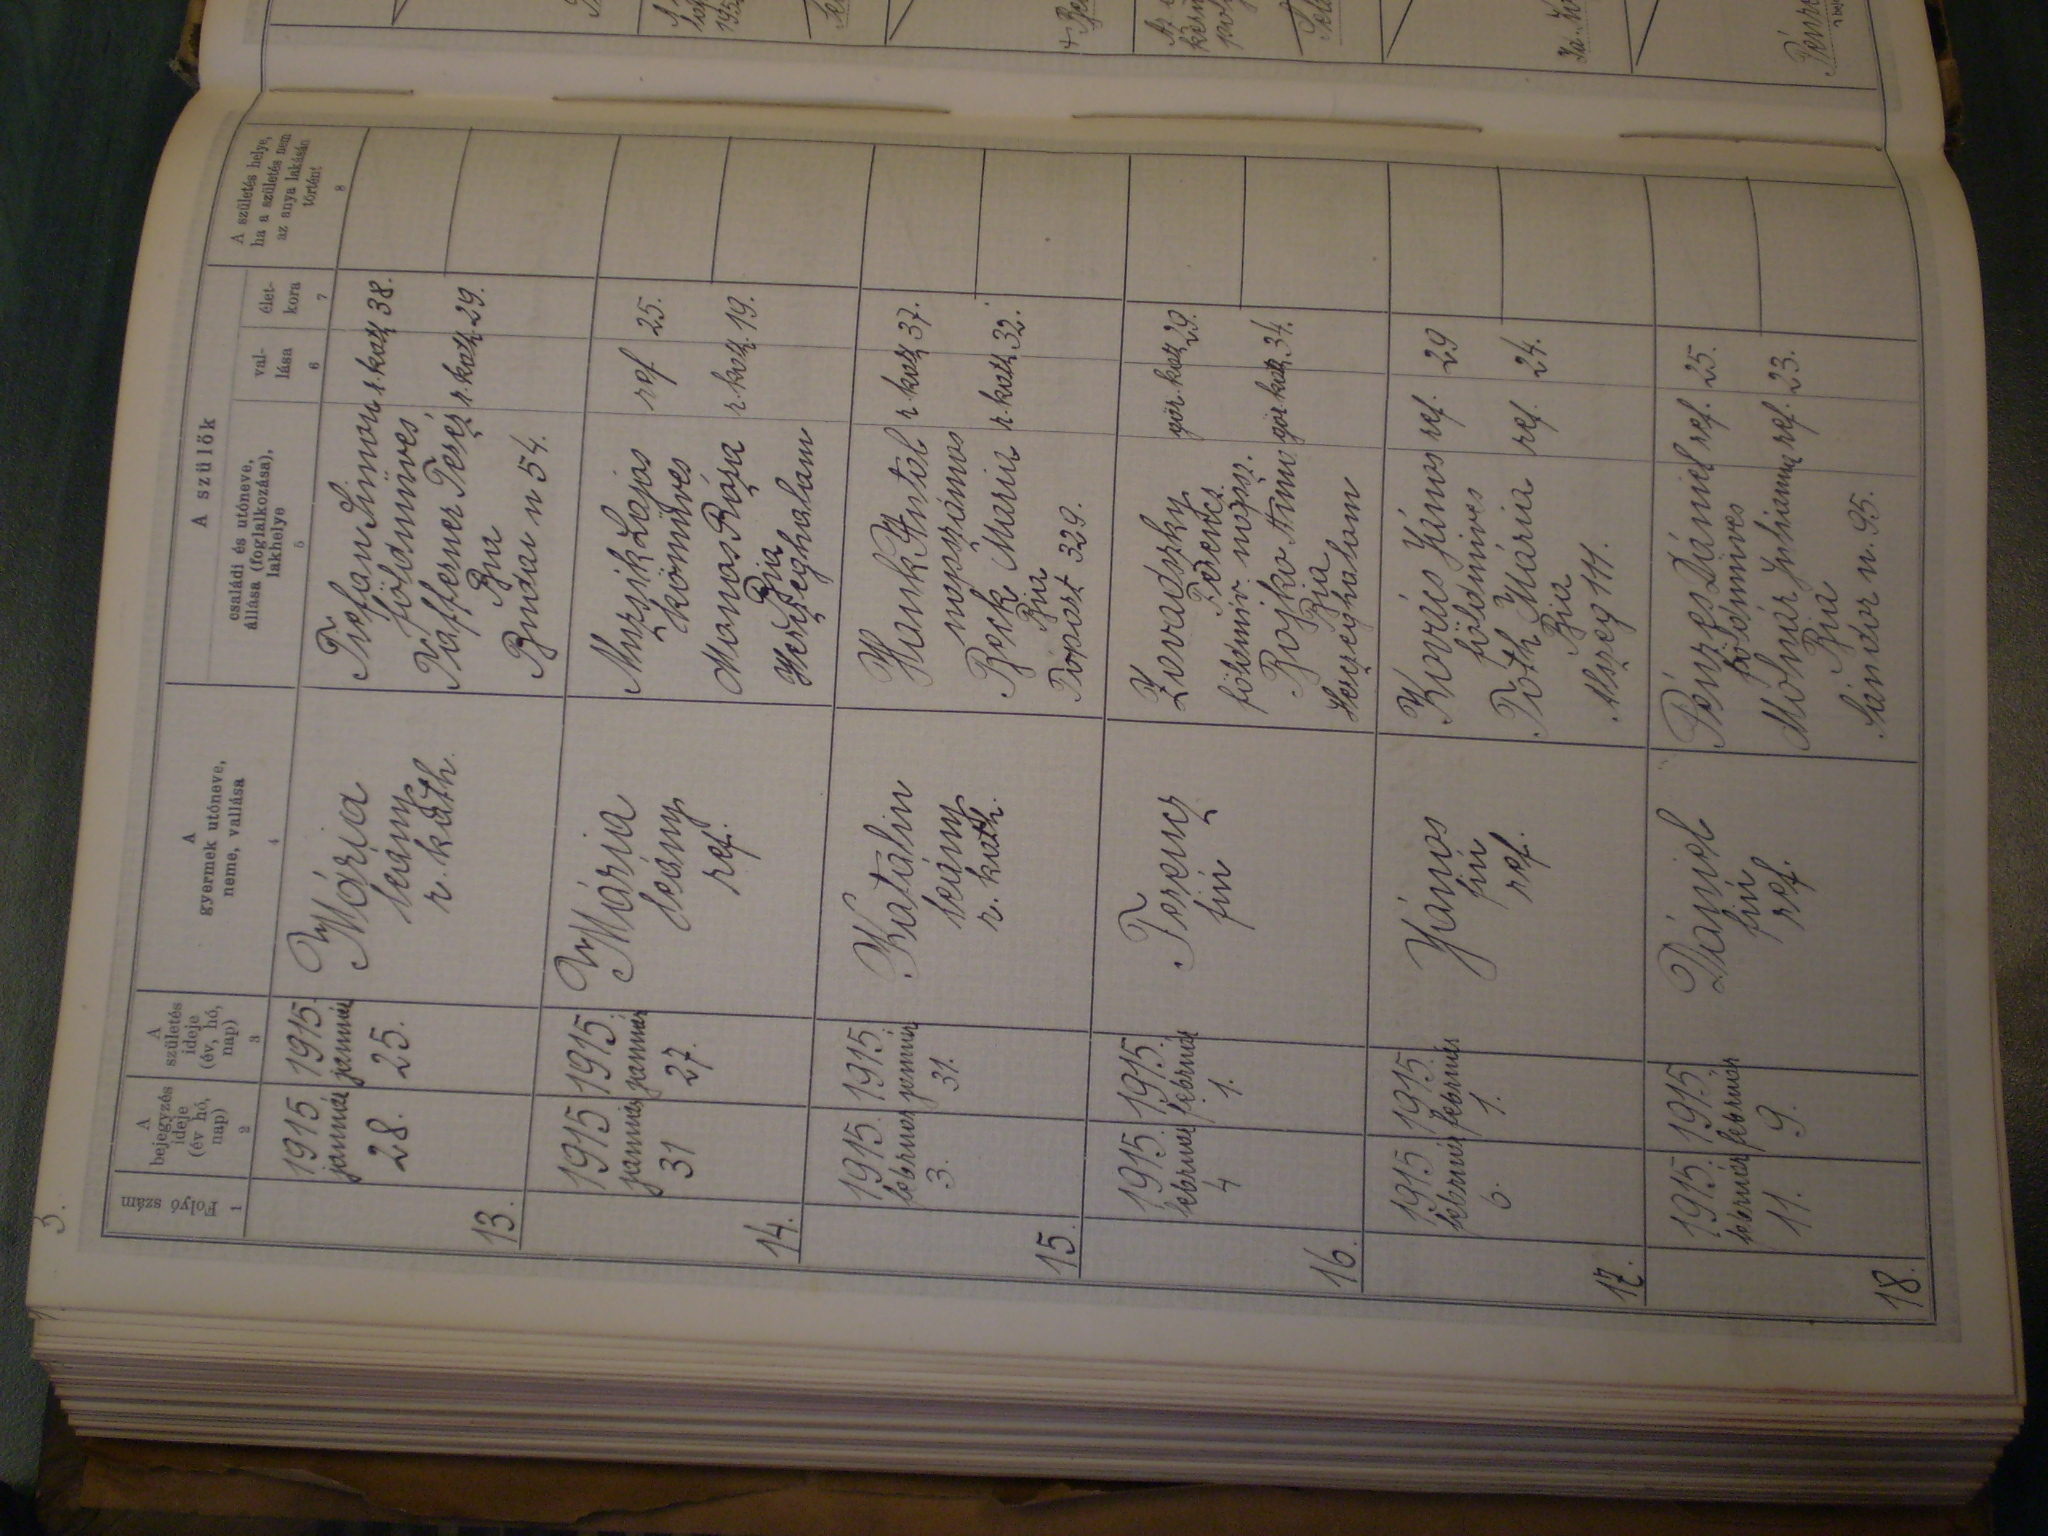 3.
Folyó szám
1
A
bejegyzés
ideje
(év hó,
nap)
2
A
születés
ideje
(év, hó,
nap)
3
A
gyermek utóneve,
neme, vallása
4
A szülők
családi és utóneve,
állása (foglalkozása),
lakhelye
5
val-
lása
6
élet-
kora
7
A születés helye,
ha a születés nem
az anya lakásán
történt
8
13.
1915.
január
28.
1915.
január
25.
Mária
leány
r. kath.
Simon
földmüves
r. kath 38.
Teréz
r. kath 29.
Bia
Budai u 54.
14.
1915
január
31
1915.
január
27.
Mária
leány
ref.
Muzsik Lajos
kőmüves
ref 25.
Manas Róza
r. kath. 19.
Bia
Herczeghalom
15.
1915.
február
3.
1915.
január
31.
Katalin
leány
r. kath.
Hank Antal
napszámos
r kath 37.
Beck Maria
r. kath 32.
Bia
329.
16.
1915.
február
4
1915.
február
1.
Ferencz
fiú
Zavadszky
Ferencz
földmiv. napsz.
gör. kath 29.
Bojko Anna
gör kath 34.
Bia
Herczeghalom
17.
1915
február
6.
1915.
február
1.
János
fiú
ref.
Kovács János
földmives
ref. 29
Tóth Mária
ref. 24.
Bia
111.
18.
1915.
február
11.
1915.
február
9.
Dániel
fiú
ref.
Pénzes Dániel
földmives
ref. 25.
Molnár Juliánna
ref. 23.
Bia
Sándor u. 95.